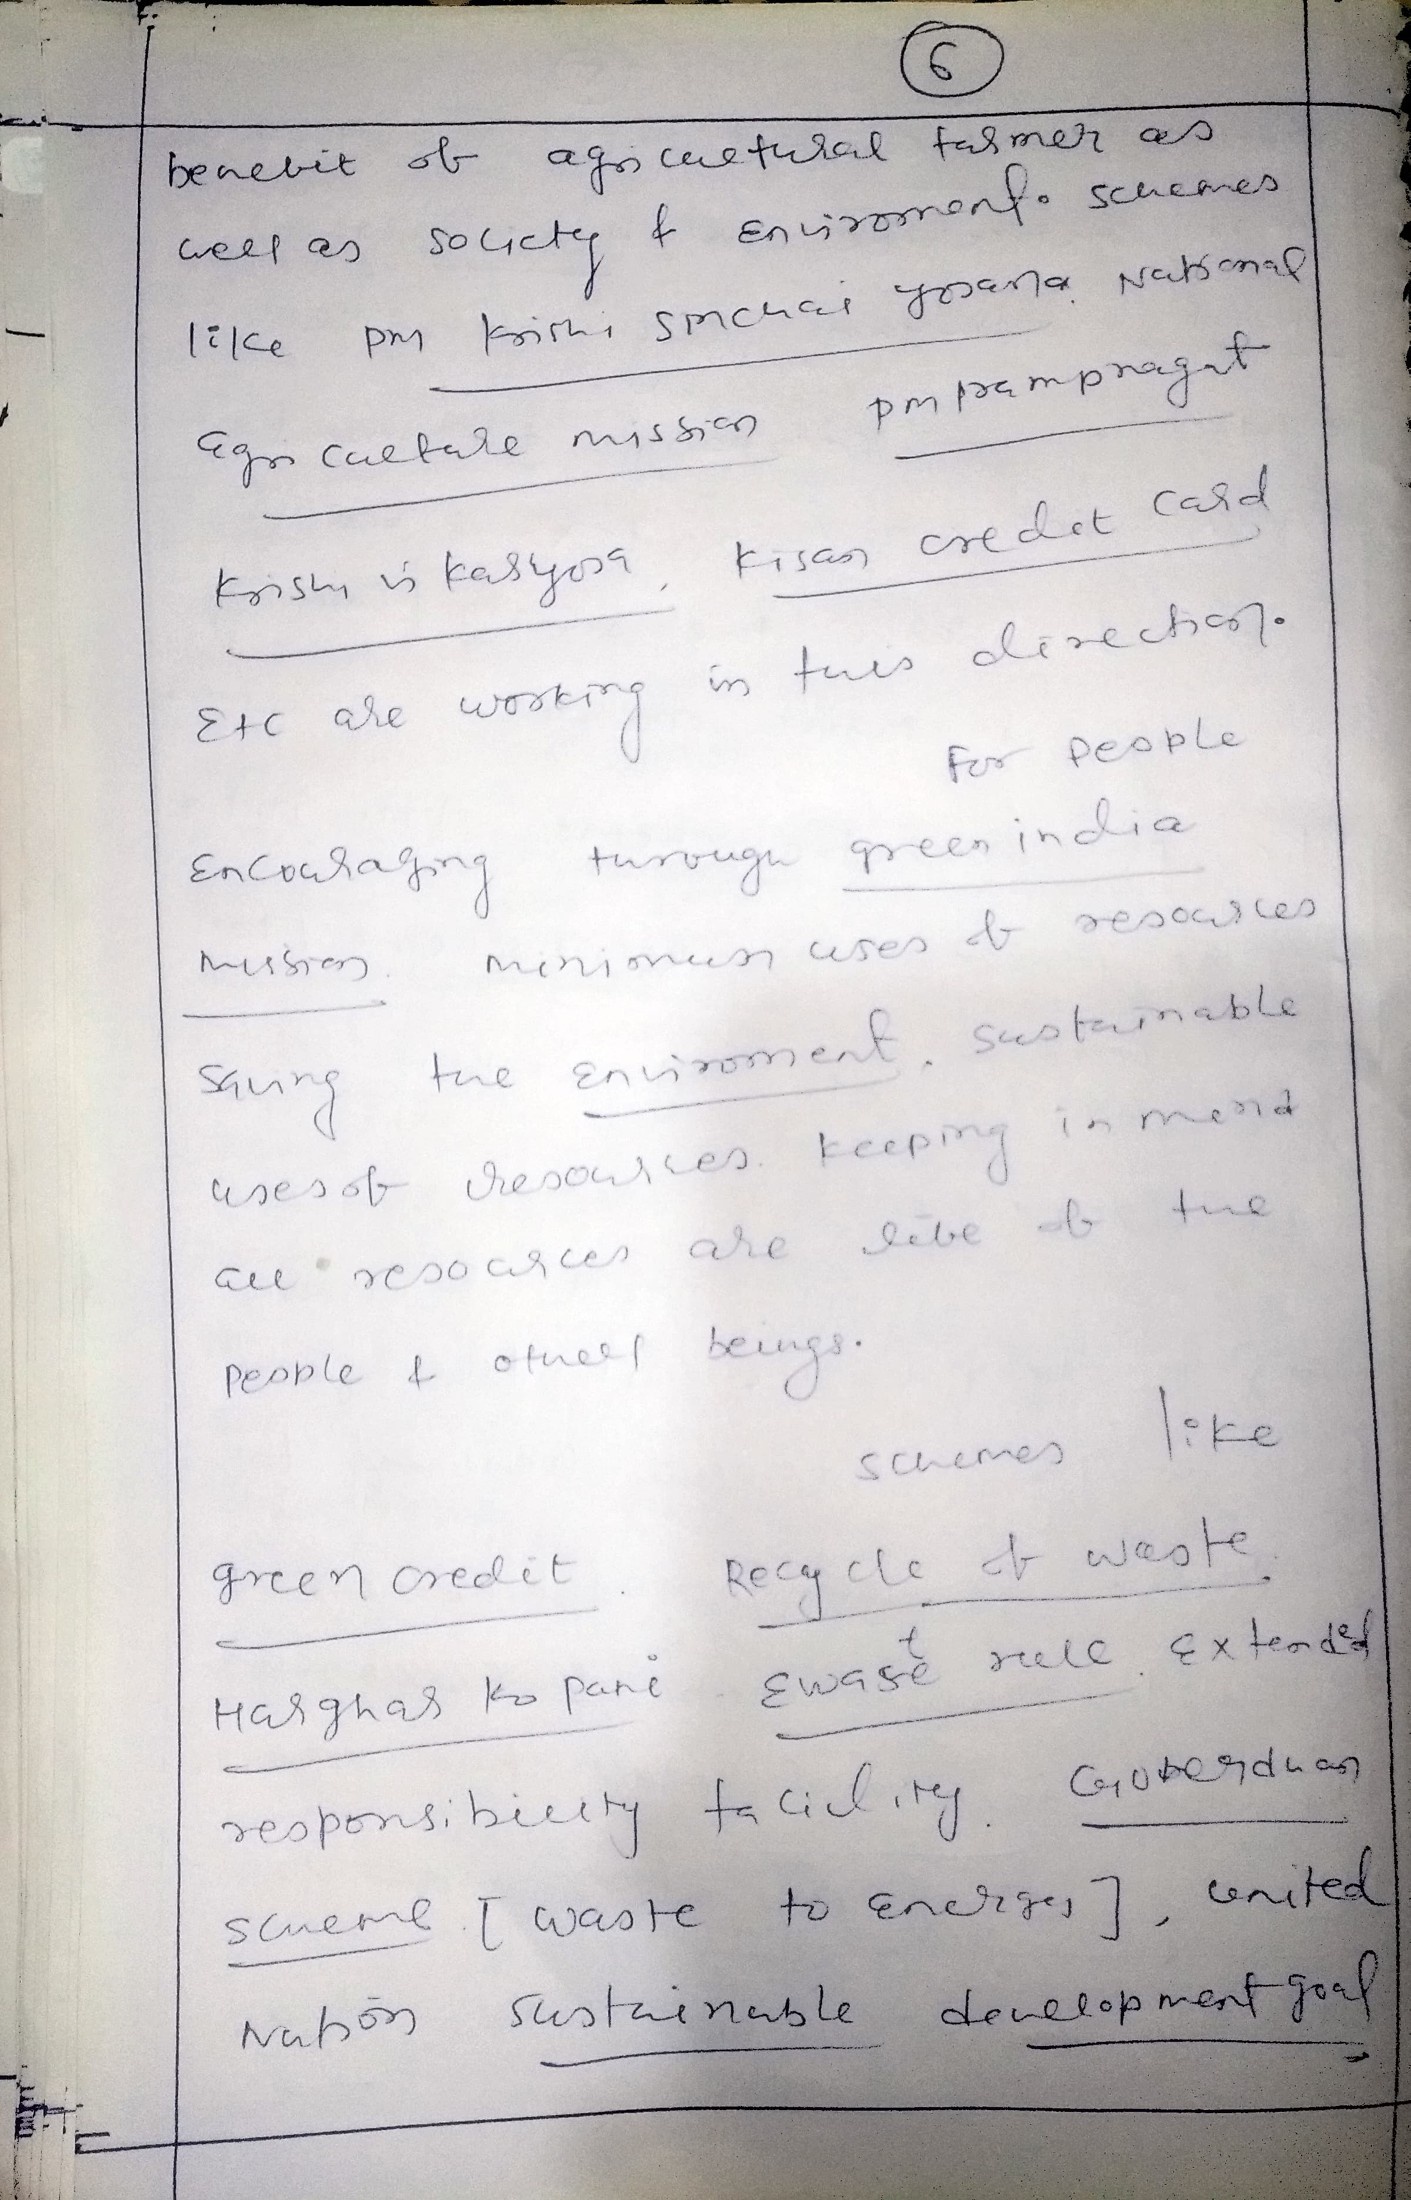 6
benefit of agricultural farmer as
well as society & Enviroment. schemes
like PM Krishi sinchai yojana, National
agriculture mission PM
Krishi vikasyoja, Kisan credit card
Etc are working in this direction.
For people
Encouraging through green india
mission. minimum uses of resources
Saving the Enviroment, sustainable
uses of resources. keeping in mind
all resources are life of the
people & other beings.
schemes like
green credit. Recycle of waste.
Harghar ko pani. Ewaste rule. Extended
responsibility facility. Goberdhan
scheme [waste to energy], united
Nation sustainable development goal